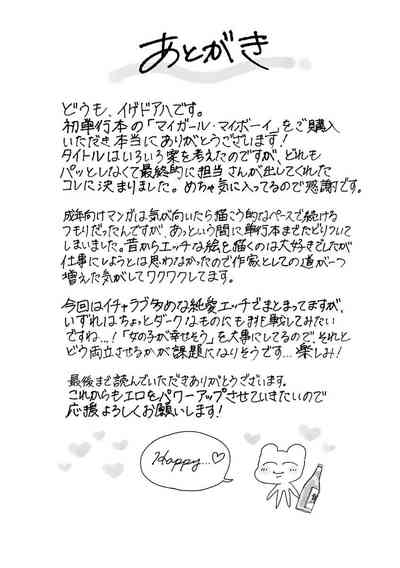 あとがき
どうも、イゲドアハです。
初単行本の「マイガール・マイボーイ」をご購入
いただき本当にありがとうございます！
タイトルはいろいろ案を考えたのですが、どれも
パッとしなくて最終的に担当さんが出してくれた
コレに決まりました。めちゃ気に入ってるので感謝です。
成年向けマンガは気が向いたら描こう的なペースで続ける
つもりだったんですが、あっという間に単行本までたどりついて
しまいました。昔からエッチな絵を描くのは大好きでしたが
仕事にしようとは思わなかったので作家としての道が一つ
増えた気がしてワクワクしてます。
今回はイチャラブ多めな純愛エッチでまとまってますが、
いずれはちょっとダークなものにも挑戦してみたい
ですね…！「女の子が幸せそう」を大事にしてるので、それと
どう両立させるかが課題になりそうです…楽しみ！
最後まで読んでいただきありがとうございます。
これからもエロをパワーアップさせていきたいので
応援よろしくお願いします！
Happy...♡